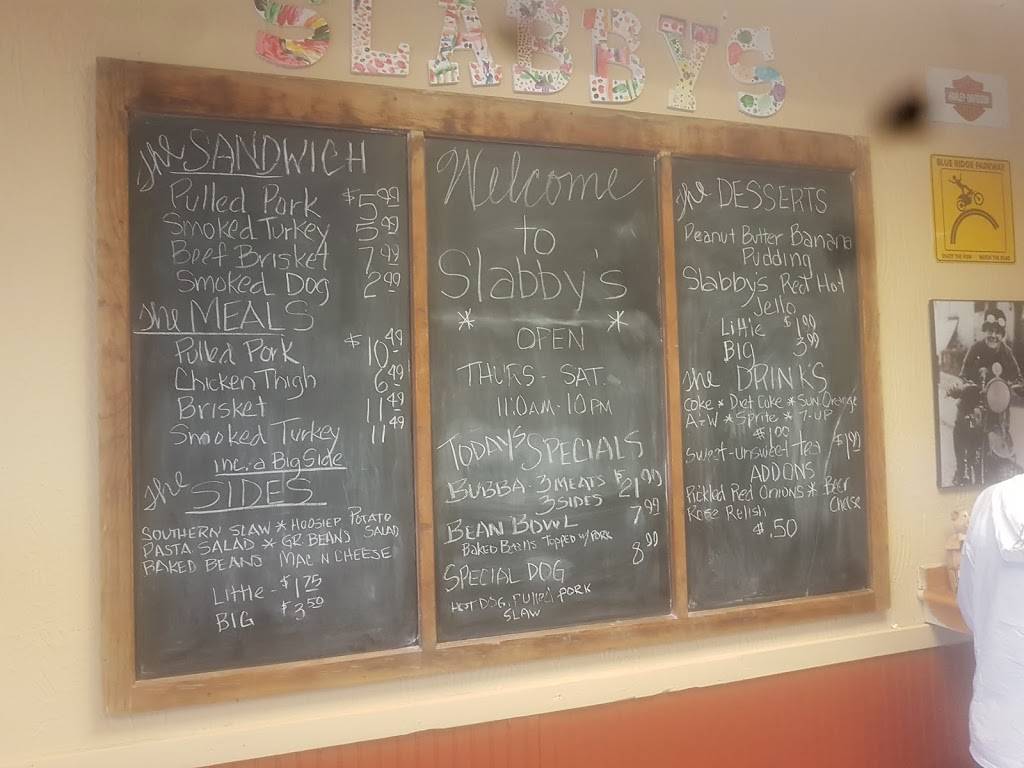 SLABBY'S
The SANDWICH
Pulled Pork $5.99
Smoked Turkey 5.99
Beef Brisket 7.99
Smoked Dog 2.99
The MEALS
Pulled Pork $10.49
Chicken Thigh 6.49
Brisket 11.49
Smoked Turkey 11.49
inc. a Big Side
The SIDES
SOUTHERN SLAW * HOOSIER POTATO SALAD
PASTA SALAD * GR. BEANS
BAKED BEANS MAC N CHEESE
Little - $1.75
BIG $3.50
Welcome
to
Slabby's
* OPEN *
THURS - SAT.
11:0AM - 10PM
TODAY'S SPECIALS
BUBBA - 3 MEATS $21.99
3 SIDES
BEAN BOWL 7.99
BAKED BEANS TOPPED W/ PORK
SPECIAL DOG 8.00
HOT DOG, Pulled PORK
SLAW
The DESSERTS
Peanut Butter Banana
Pudding
Slabby's Red Hot
Jello
Little $1.99
BIG 3.99
The DRINKS
Coke * Diet Coke * Sun Orange
A+W * Sprite * 7-UP
$1.00
Sweet-Unsweet Tea / $1.99
ADDONS
Pickled Red Onions * Beer Cheese
Rose Relish
$.50
HARLEY-DAVIDSON
BLUE RIDGE PARKWAY